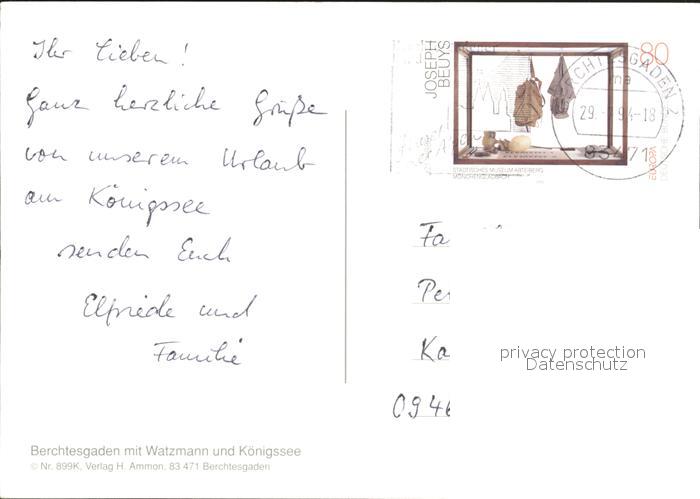 Ihr Lieben!
Ganz herzliche Grüße
von unserem Urlaub
am Königssee
senden Euch
Elfriede und
Familie
JOSEPH
BEUYS
80
STÄDTISCHES MUSEUM ABTEIBERG
MÖNCHENGLADBACH
EUROPA
29. 94-18
ma
Fa
Pe
Ka
0946
privacy protection
Datenschutz
Berchtesgaden mit Watzmann und Königssee
© Nr. 899K, Verlag H. Ammon, 83 471 Berchtesgaden